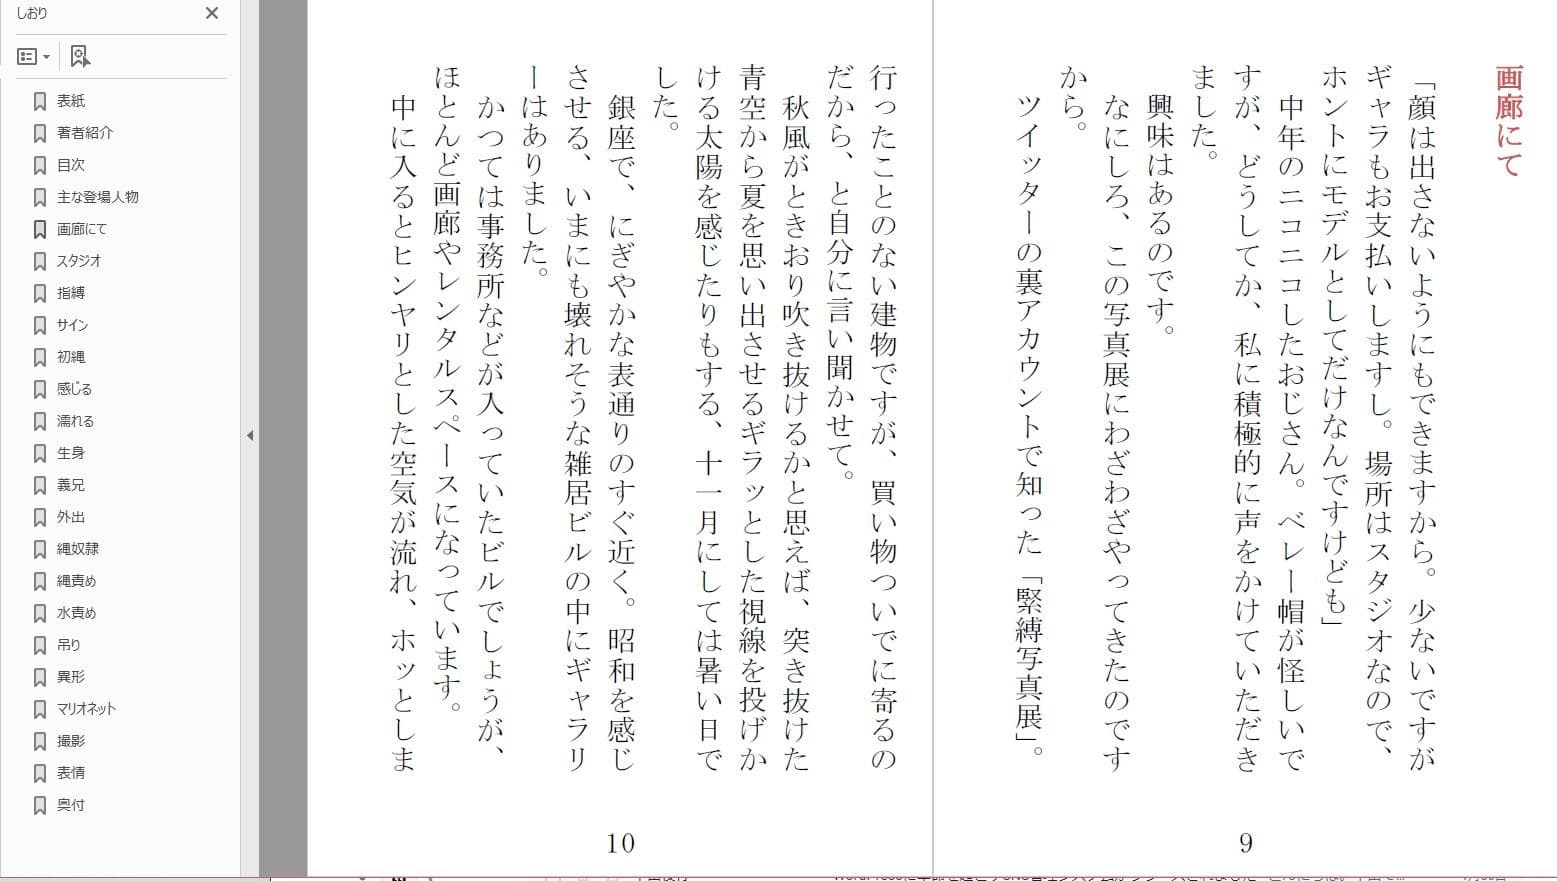 しおり
表紙
著者紹介
目次
主な登場人物
画廊にて
スタジオ
指縛
サイン
初縄
感じる
濡れる
生身
義兄
外出
縄奴隷
縄責め
水責め
吊り
異形
マリオネット
撮影
表情
奥付
画廊にて
「顔は出さないようにもできますから。少ないですが
ギャラもお支払いしますし。場所はスタジオなので、
ホントにモデルとしてだけなんですけども」
中年のニコニコしたおじさん。ベレー帽が怪しいで
すが、どうしてか、私に積極的に声をかけていただき
ました。
興味はあるのです。
なにしろ、この写真展にわざわざやってきたのです
から。
ツイッターの裏アカウントで知った「緊縛写真展」。
9
行ったことのない建物ですが、買い物ついでに寄るの
だから、と自分に言い聞かせて。
秋風がときおり吹き抜けるかと思えば、突き抜けた
青空から夏を思い出させるギラッとした視線を投げか
ける太陽を感じたりもする、十一月にしては暑い日で
した。
銀座で、にぎやかな表通りのすぐ近く。昭和を感じ
させる、いまにも壊れそうな雑居ビルの中にギャラリ
ーはありました。
かつては事務所などが入っていたビルでしょうが、
ほとんど画廊やレンタルスペースになっています。
中に入るとヒンヤリとした空気が流れ、ホッとしま
10